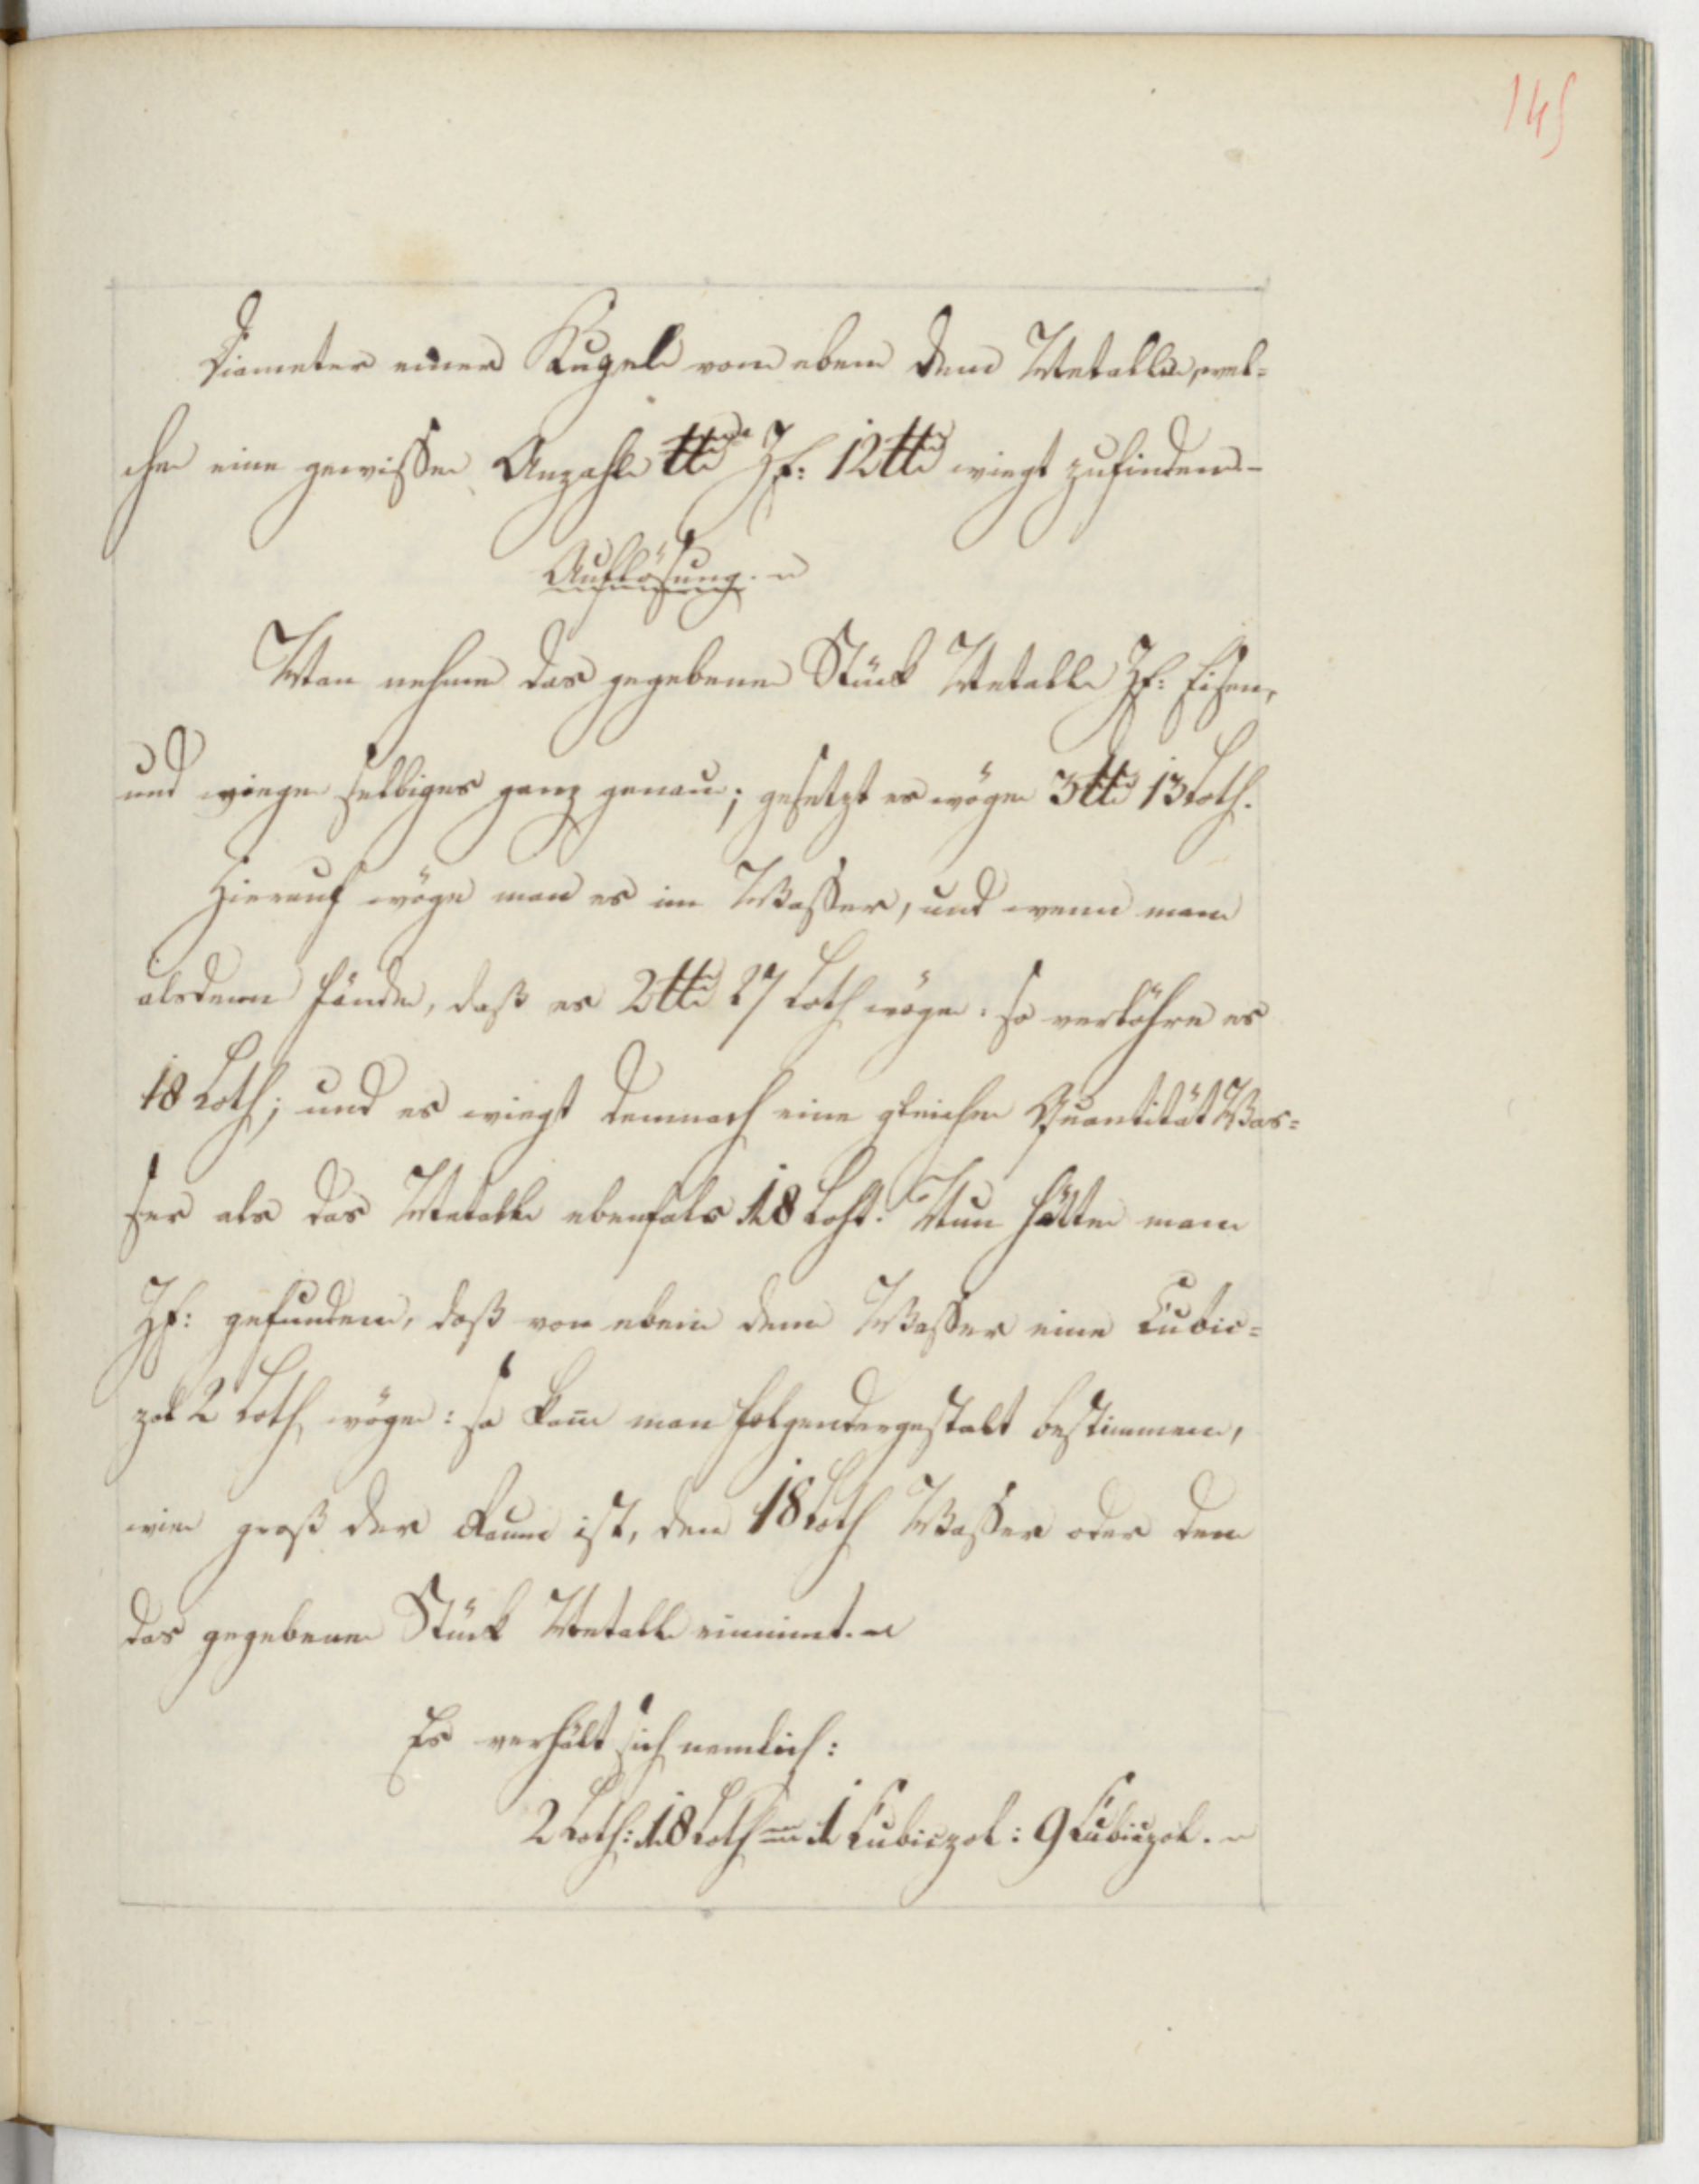 145
Diameter einer Kugel von eben dem Metalle, wel=
che eine gewisse Anzahl ℔ Zf: 12 ℔ wiegt zufinden.
Auflösung.
Man nehme das gegebene Stück Metall Zf: Eisen,
und wiege selbiges ganz genau; gesetzt es wöge 3 ℔ 13 Loth.
Hierauf wöge man es im Wasser, und wenn man
alsdenn fände, daß es 2 ℔ 27 Loth wöge: so verlöhre es
18 Loth; und es wiegt demnach eine gleiche Quantität Was=
ser als das Metall ebenfals 18 Loht. Nun hätte man
Zf: gefunden, daß von eben dem Wasser eine Cubic=
zol 2 Loth wöge: so kañ man folgendergestalt bestimmen,
wie groß der Raum ist, den 18 Loth Wasser oder den
das gegebene Stück Metall einnimt.
Es verhält sich nemlich:
2 Loth: 18 Loth = 1 Cubiczol: 9 Cubiczol.